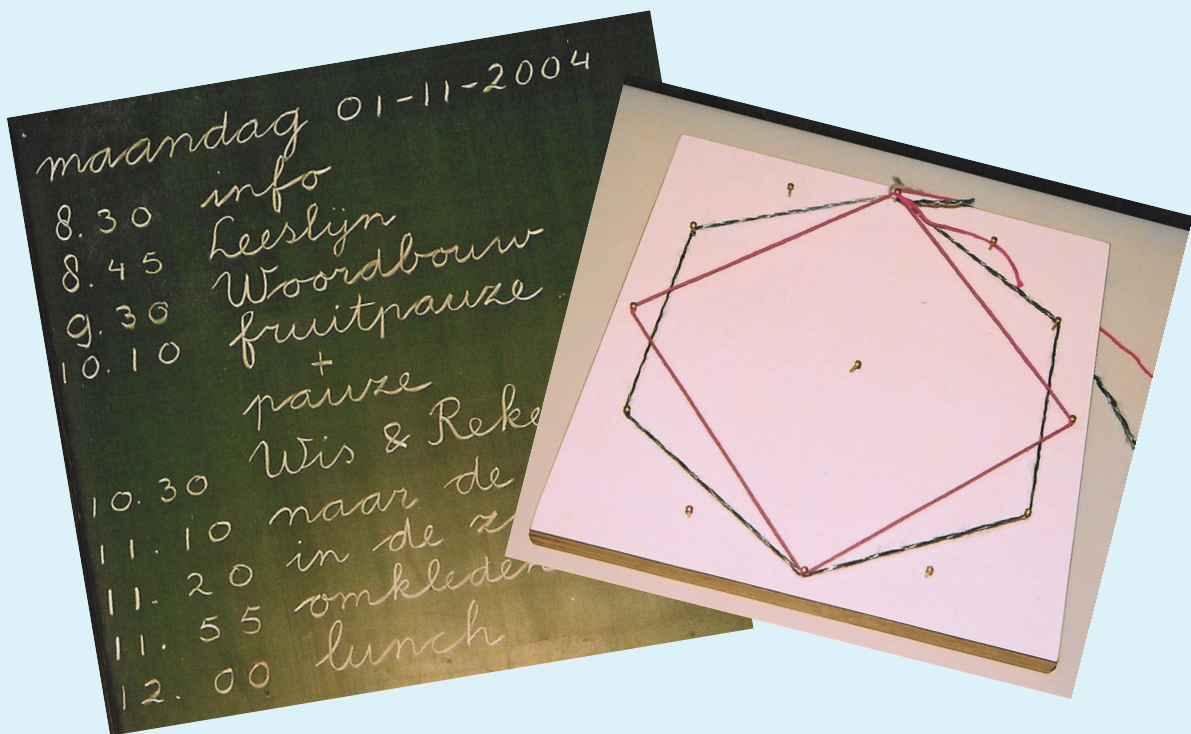 maandag 01-11-2004
8.30 info
8.45 Leeslijn
9.30 Woordbouw
10.10 fruitpauze
+
pauze
10.30 Wis & Reke
11.10 naar de
11.20 in de
11.55 omkleden
12.00 lunch